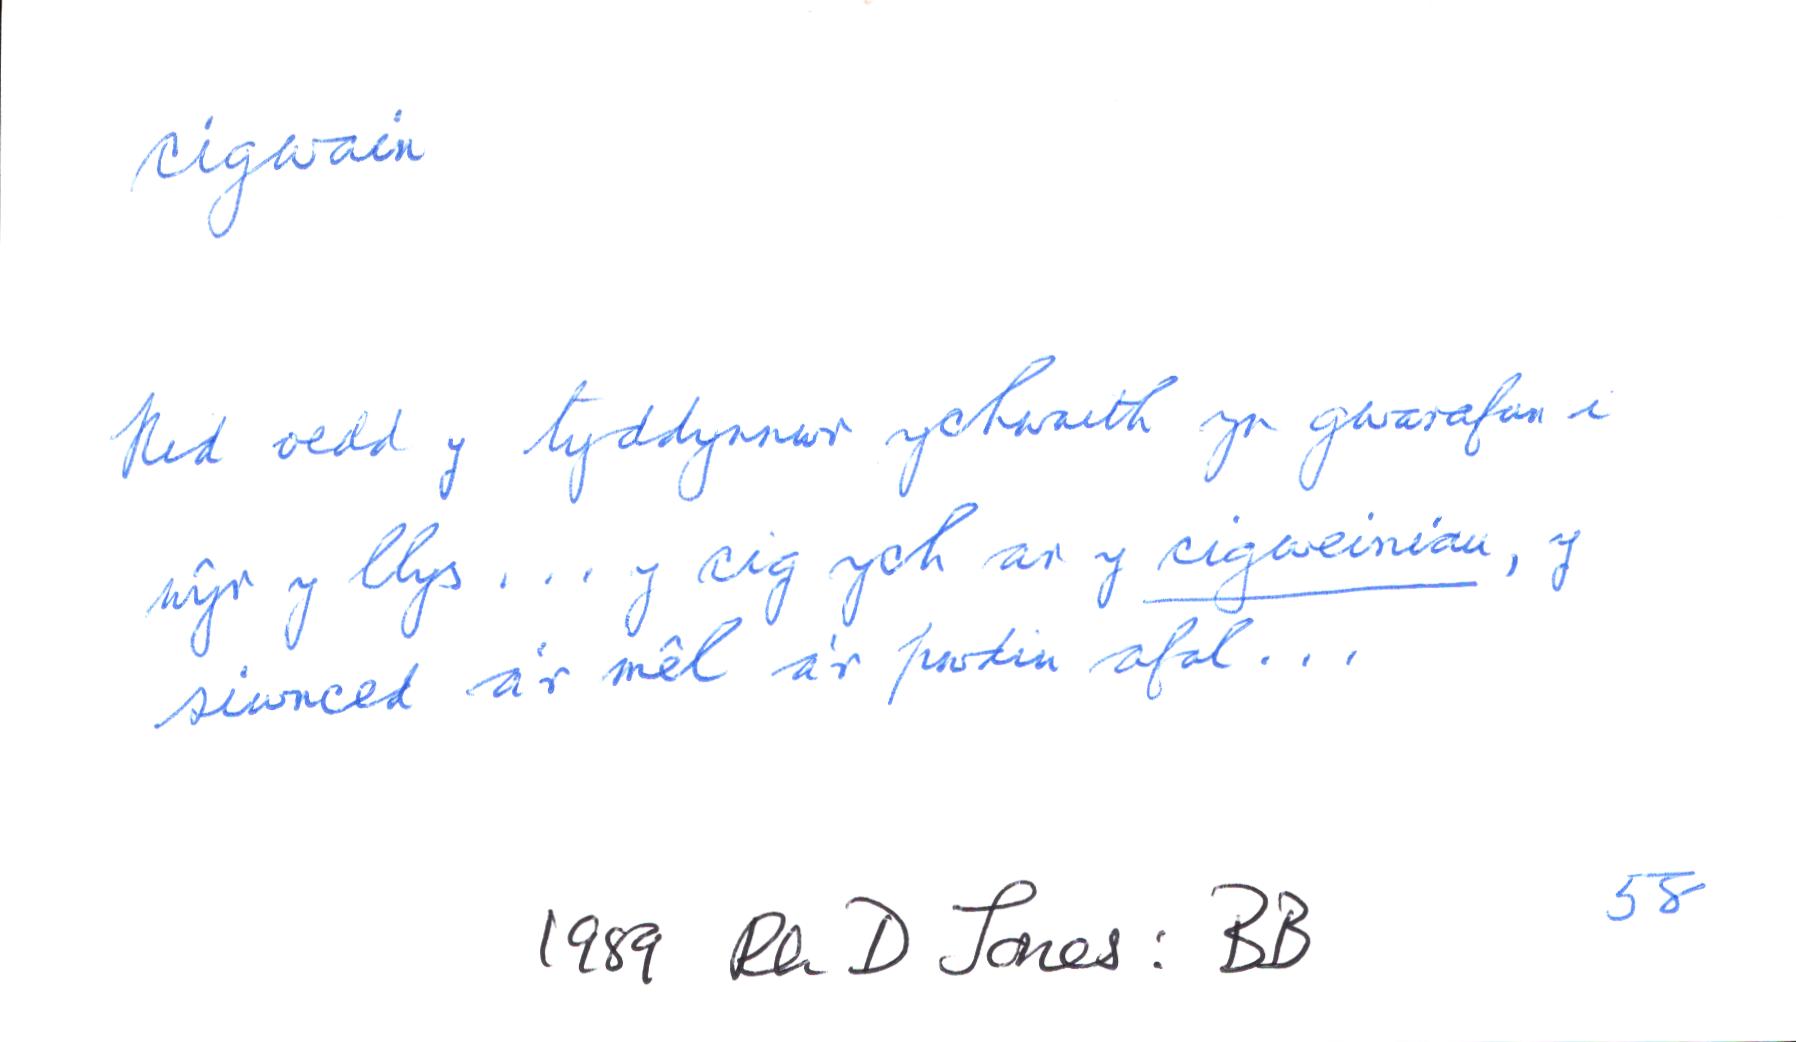 cigwain
Nid oedd y tyddynnwr ychwaith yn gwarafun i
wŷr y llys . . . y cig ych ar y cigweiniau, y
siwnced a'r mêl a'r pwdin afal . . .
58
1989 Rh D Jones : BB